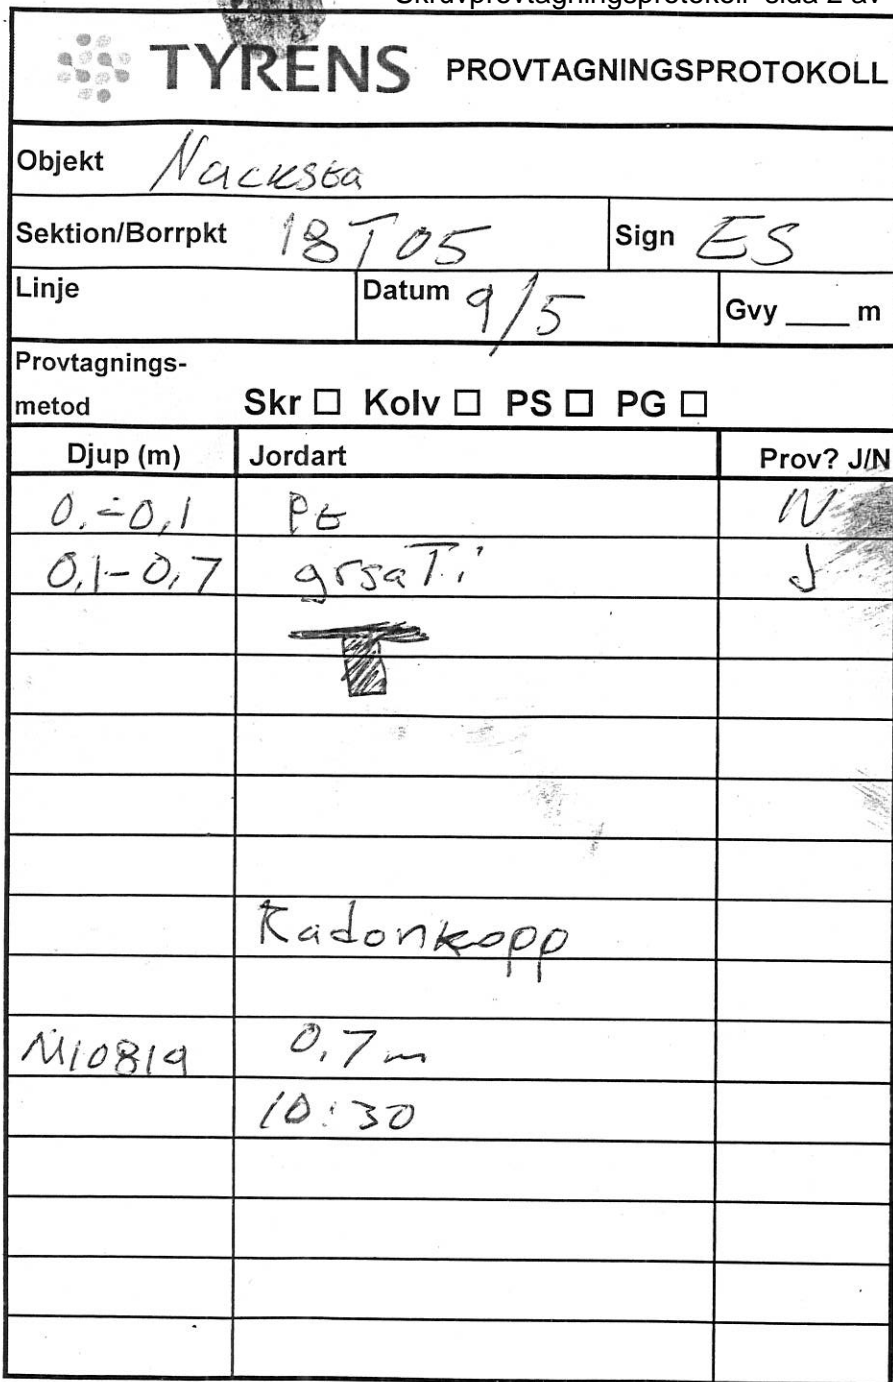 TYRENS PROVTAGNINGSPROTOKOLL
Objekt Nacksta
Sektion/Borrpkt 18T05 Sign ES
Linje Datum 9/5 Gvy ____ m
Provtagnings-
metod Skr ☐ Kolv ☐ PS ☐ PG ☐
Djup (m) Jordart Prov? J/N
0,-0,1 Pt N
0,1-0,7 grsaTi J
Radonkopp
M10819 0,7m
10:30